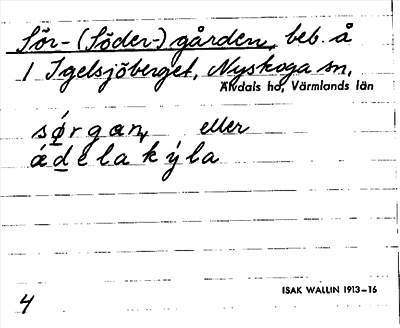 Sör- (Söder-) gården, beb. å
1 Igelsjöberget, Nyskoga sn,
Älvdals hd, Värmlands län
sǿrgan, eller
ádelakýla
ISAK WALLIN 1913–16
4